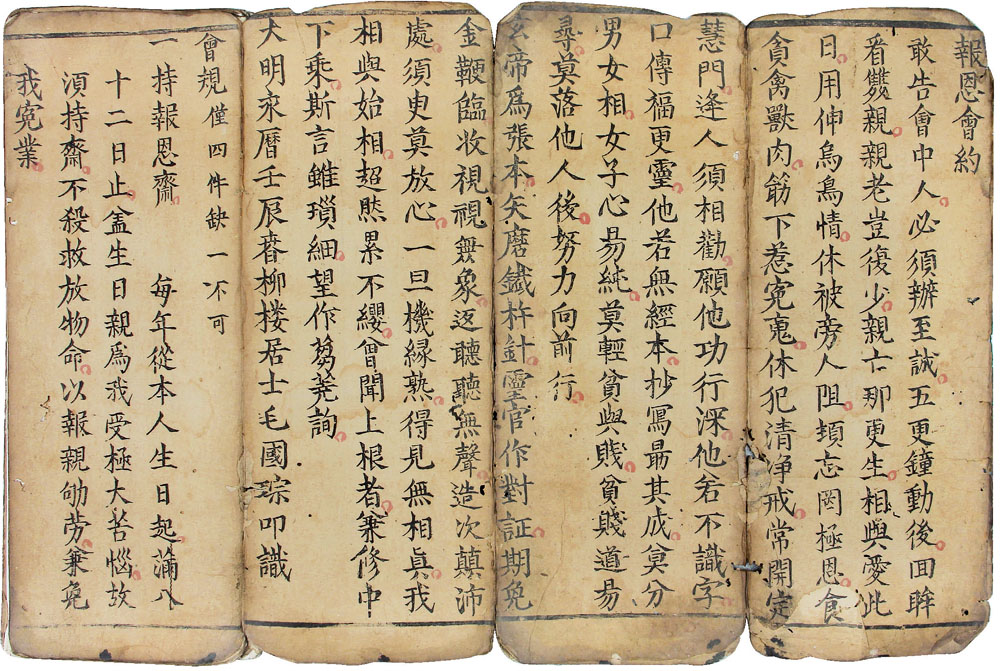 報恩會約
敢告會中人必須辦至誠五更鐘動後回眸
看雙親親老豈復少親亡那更生相與愛此
日用伸烏鳥情休被旁人阻頓忘罔極恩食
貪禽獸肉筯下惹寃䰟休犯清净戒常開定
慧門逢人須相勸願他功行深他若不識字
口傳福更靈他若無經本抄寫最其成莫分
男女相女子心易純莫輕貧與賤貧賤道易
尋莫落他人後努力向前行
玄帝爲張本矢磨鐵杵針靈官作對証期免
金鞭臨收視視無象返聽聽無聲造次顛沛
處須更莫放心一旦機緣熟得見無相真我
相與始相超㷊累不纓曾聞上根者兼修中
下乘斯言雖瑣細望作蒭蕘詢
大明永曆壬辰春柳楼居士毛國琮叩識
會規僅四件缺一不可
一持報恩齋 每年從本人生日起滿八
十二日止盖生日親爲我受極大苦惱故
須持齋不殺救放物命以報親劬劳兼免
我寃業